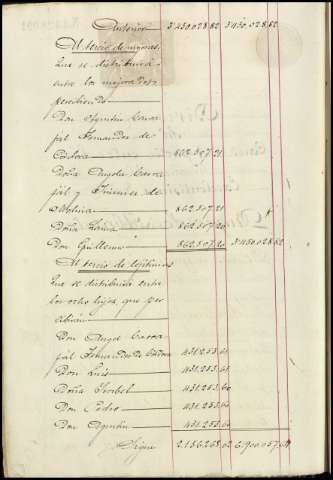 Anterior 3'450.028,82 3'450.028,82
Al tercio de mejoras,
que se distribuirá
entre los mejorados,
percibiendo
Don Agustin Carva-
jal Fernandez de
Córdova 862.507,21
Doña Angela Carva-
jal y Jimenez de
Molina 862.507,21
Doña Laura 862.507,20
Don Guillermo 862.507,20 3'450.028,82
Al tercio de legítimas
que se distribuirá entre
los ocho hijos, que per-
cibirán
Don Angel Carva-
jal Fernandez de Córdova 431.253,61
Don Luis 431.253,61
Doña Isabel 431.253,60
Don Pedro 431.253,60
Don Agustin 431.253,60
Sigue 2.156.268,02 6.900.057,64